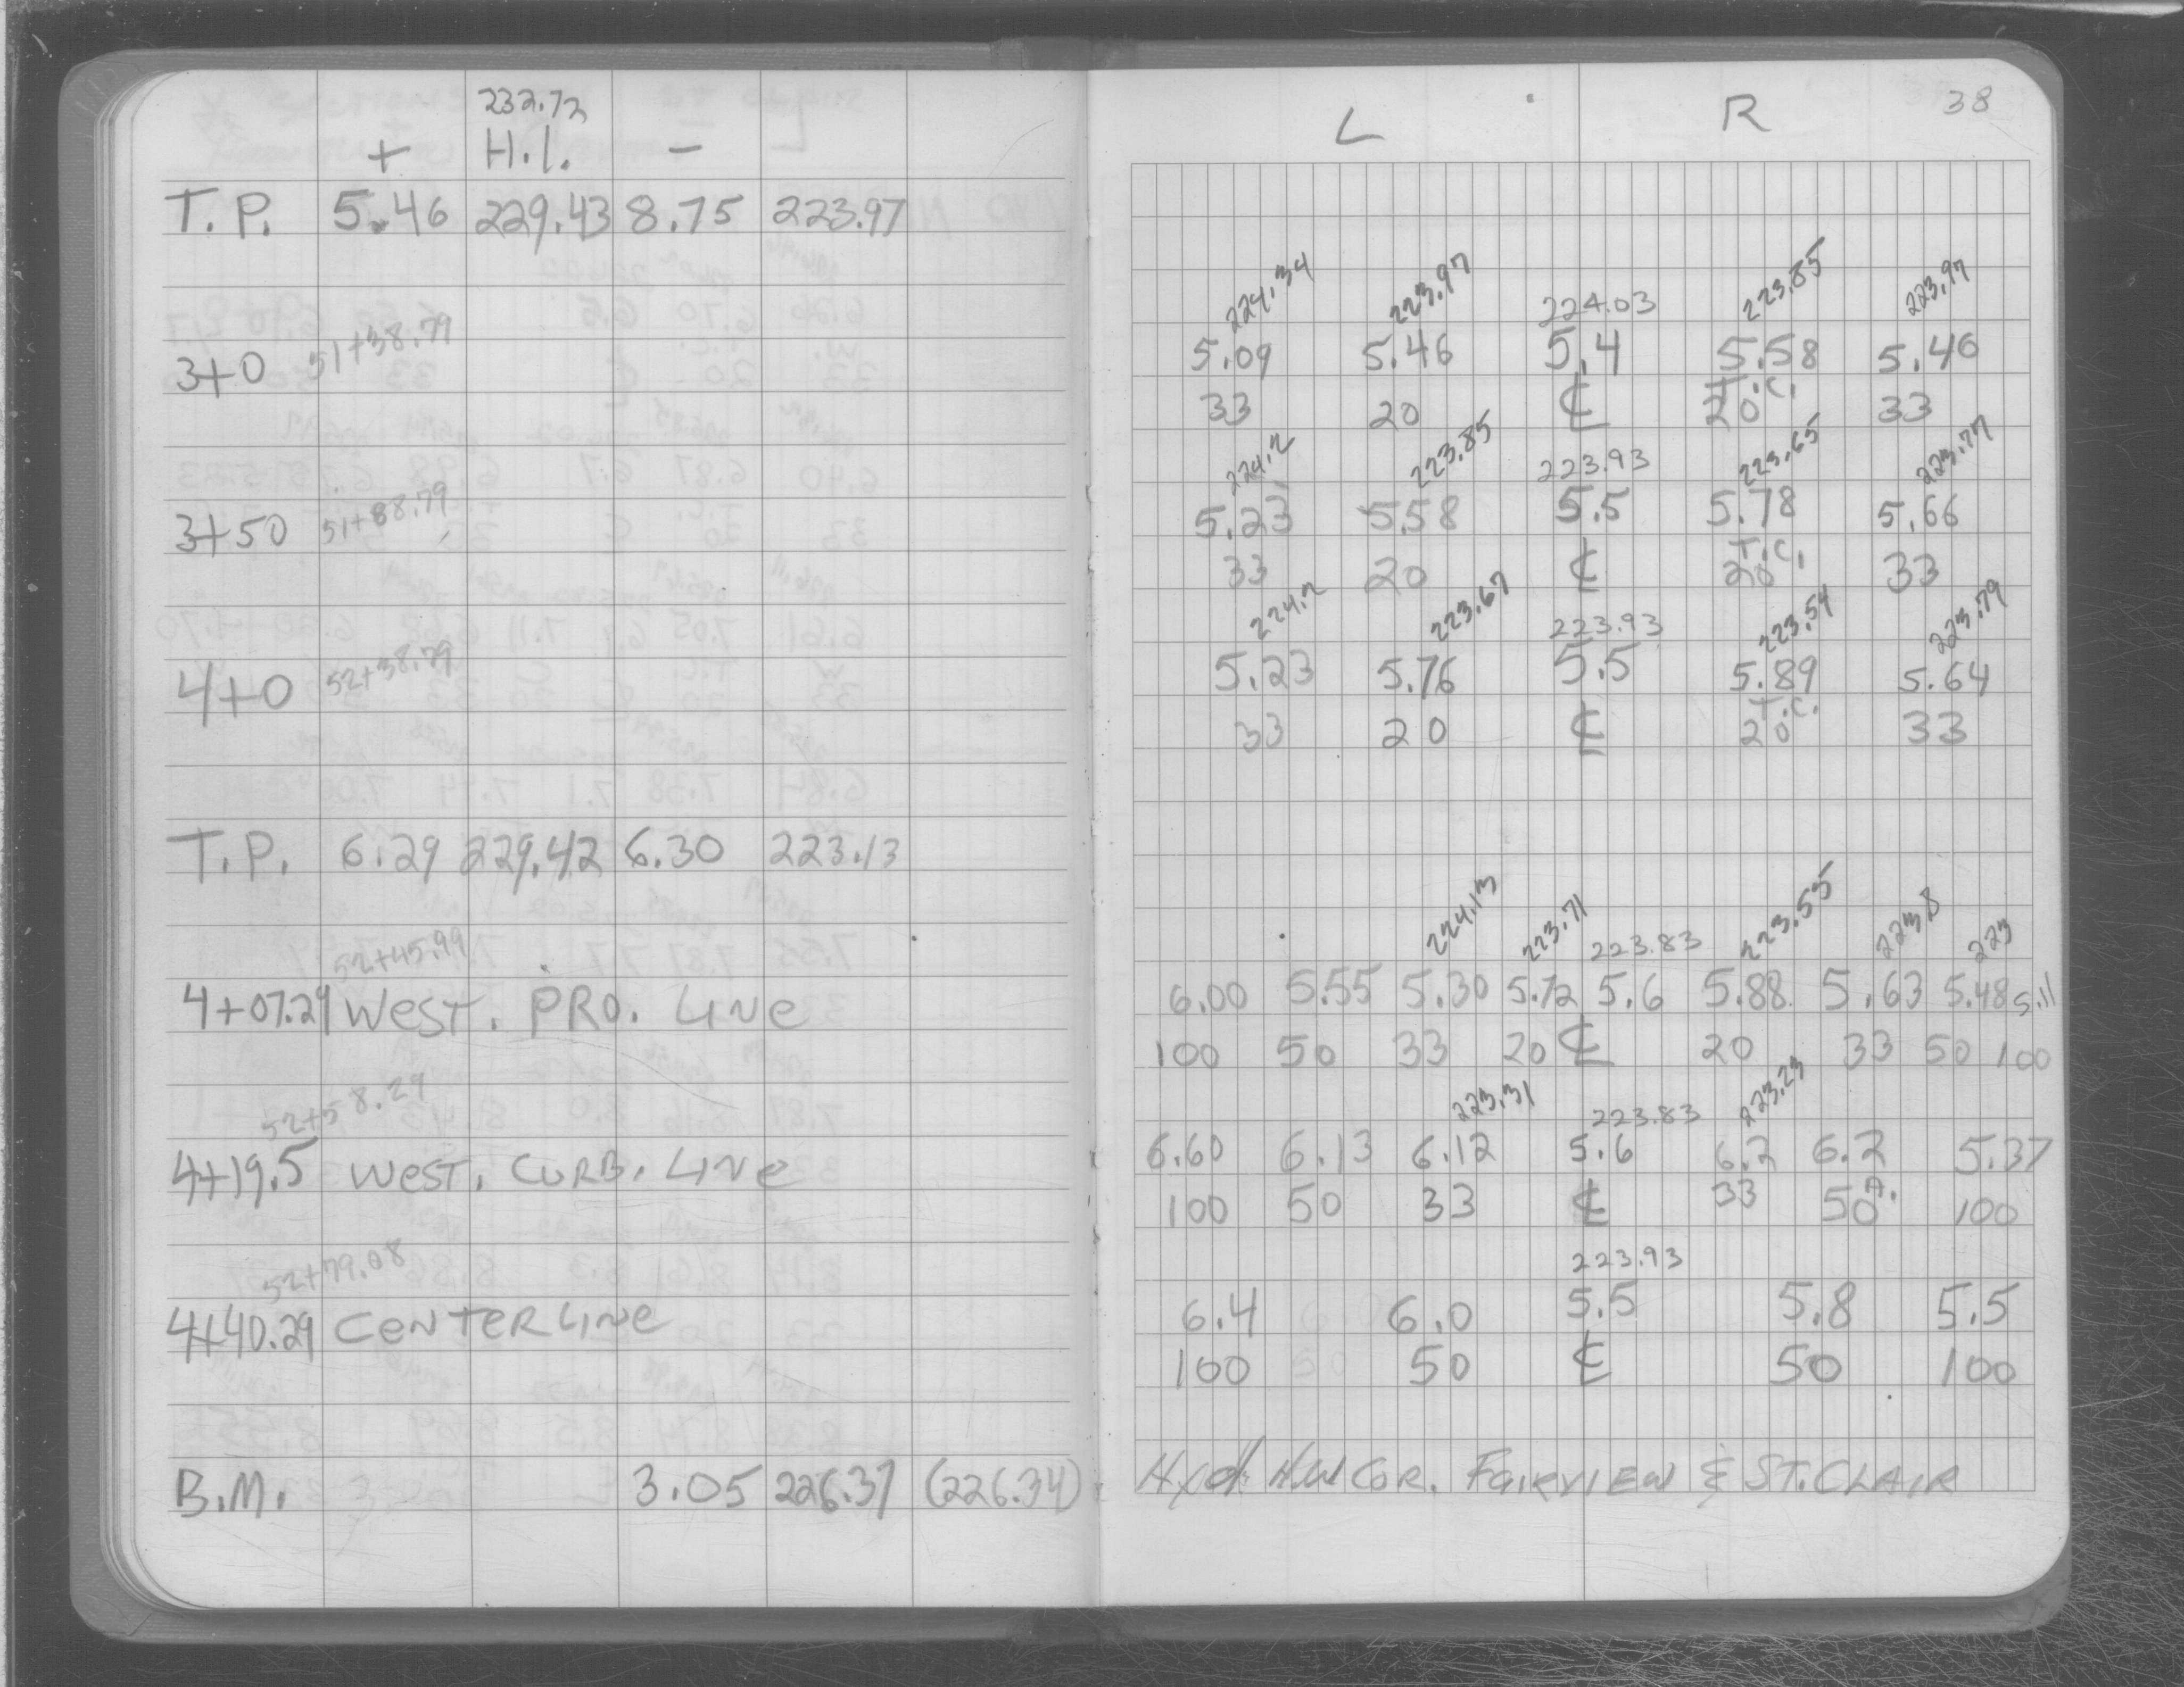 232.72
+ H.I. -
T.P. 5.46 229.43 8.75 223.97
3+0 51+38.79
3+50 51+88.79
4+0 52+38.79
T.P. 6.29 229.42 6.30 223.13
52+45.99
4+07.29 West. PRO. LINe
52+58.29
4+19.5 West. CURB. LINe
52+79.08
4+40.29 CeNTERLINe
B.M. 3.05 226.37 (226.34)
L R 38
224.34 223.97 224.03 223.85 223.97
5.09 5.46 5.4 5.58 5.46
T.C.
33 20 ℄ 20 33
224.2 223.85 223.93 223.65 223.77
5.23 5.58 5.5 5.78 5.66
T.C.
33 20 ℄ 20 33
224.2 223.67 223.93 223.54 223.79
5.23 5.76 5.5 5.89 5.64
T.C.
33 20 ℄ 20 33
224.13 223.71 223.83 223.55 223.8 223
6.00 5.55 5.30 5.72 5.6 5.88 5.63 5.48 5.11
100 50 33 20 ℄ 20 33 50 100
223.31 223.83 223.23
6.60 6.13 6.12 5.6 6.2 6.2 5.37
100 50 33 ℄ 33 50 A. 100
223.93
6.4 6.0 5.5 5.8 5.5
100 50 ℄ 50 100
Hyd. NW COR. FAIRVIEW & ST. CLAIR